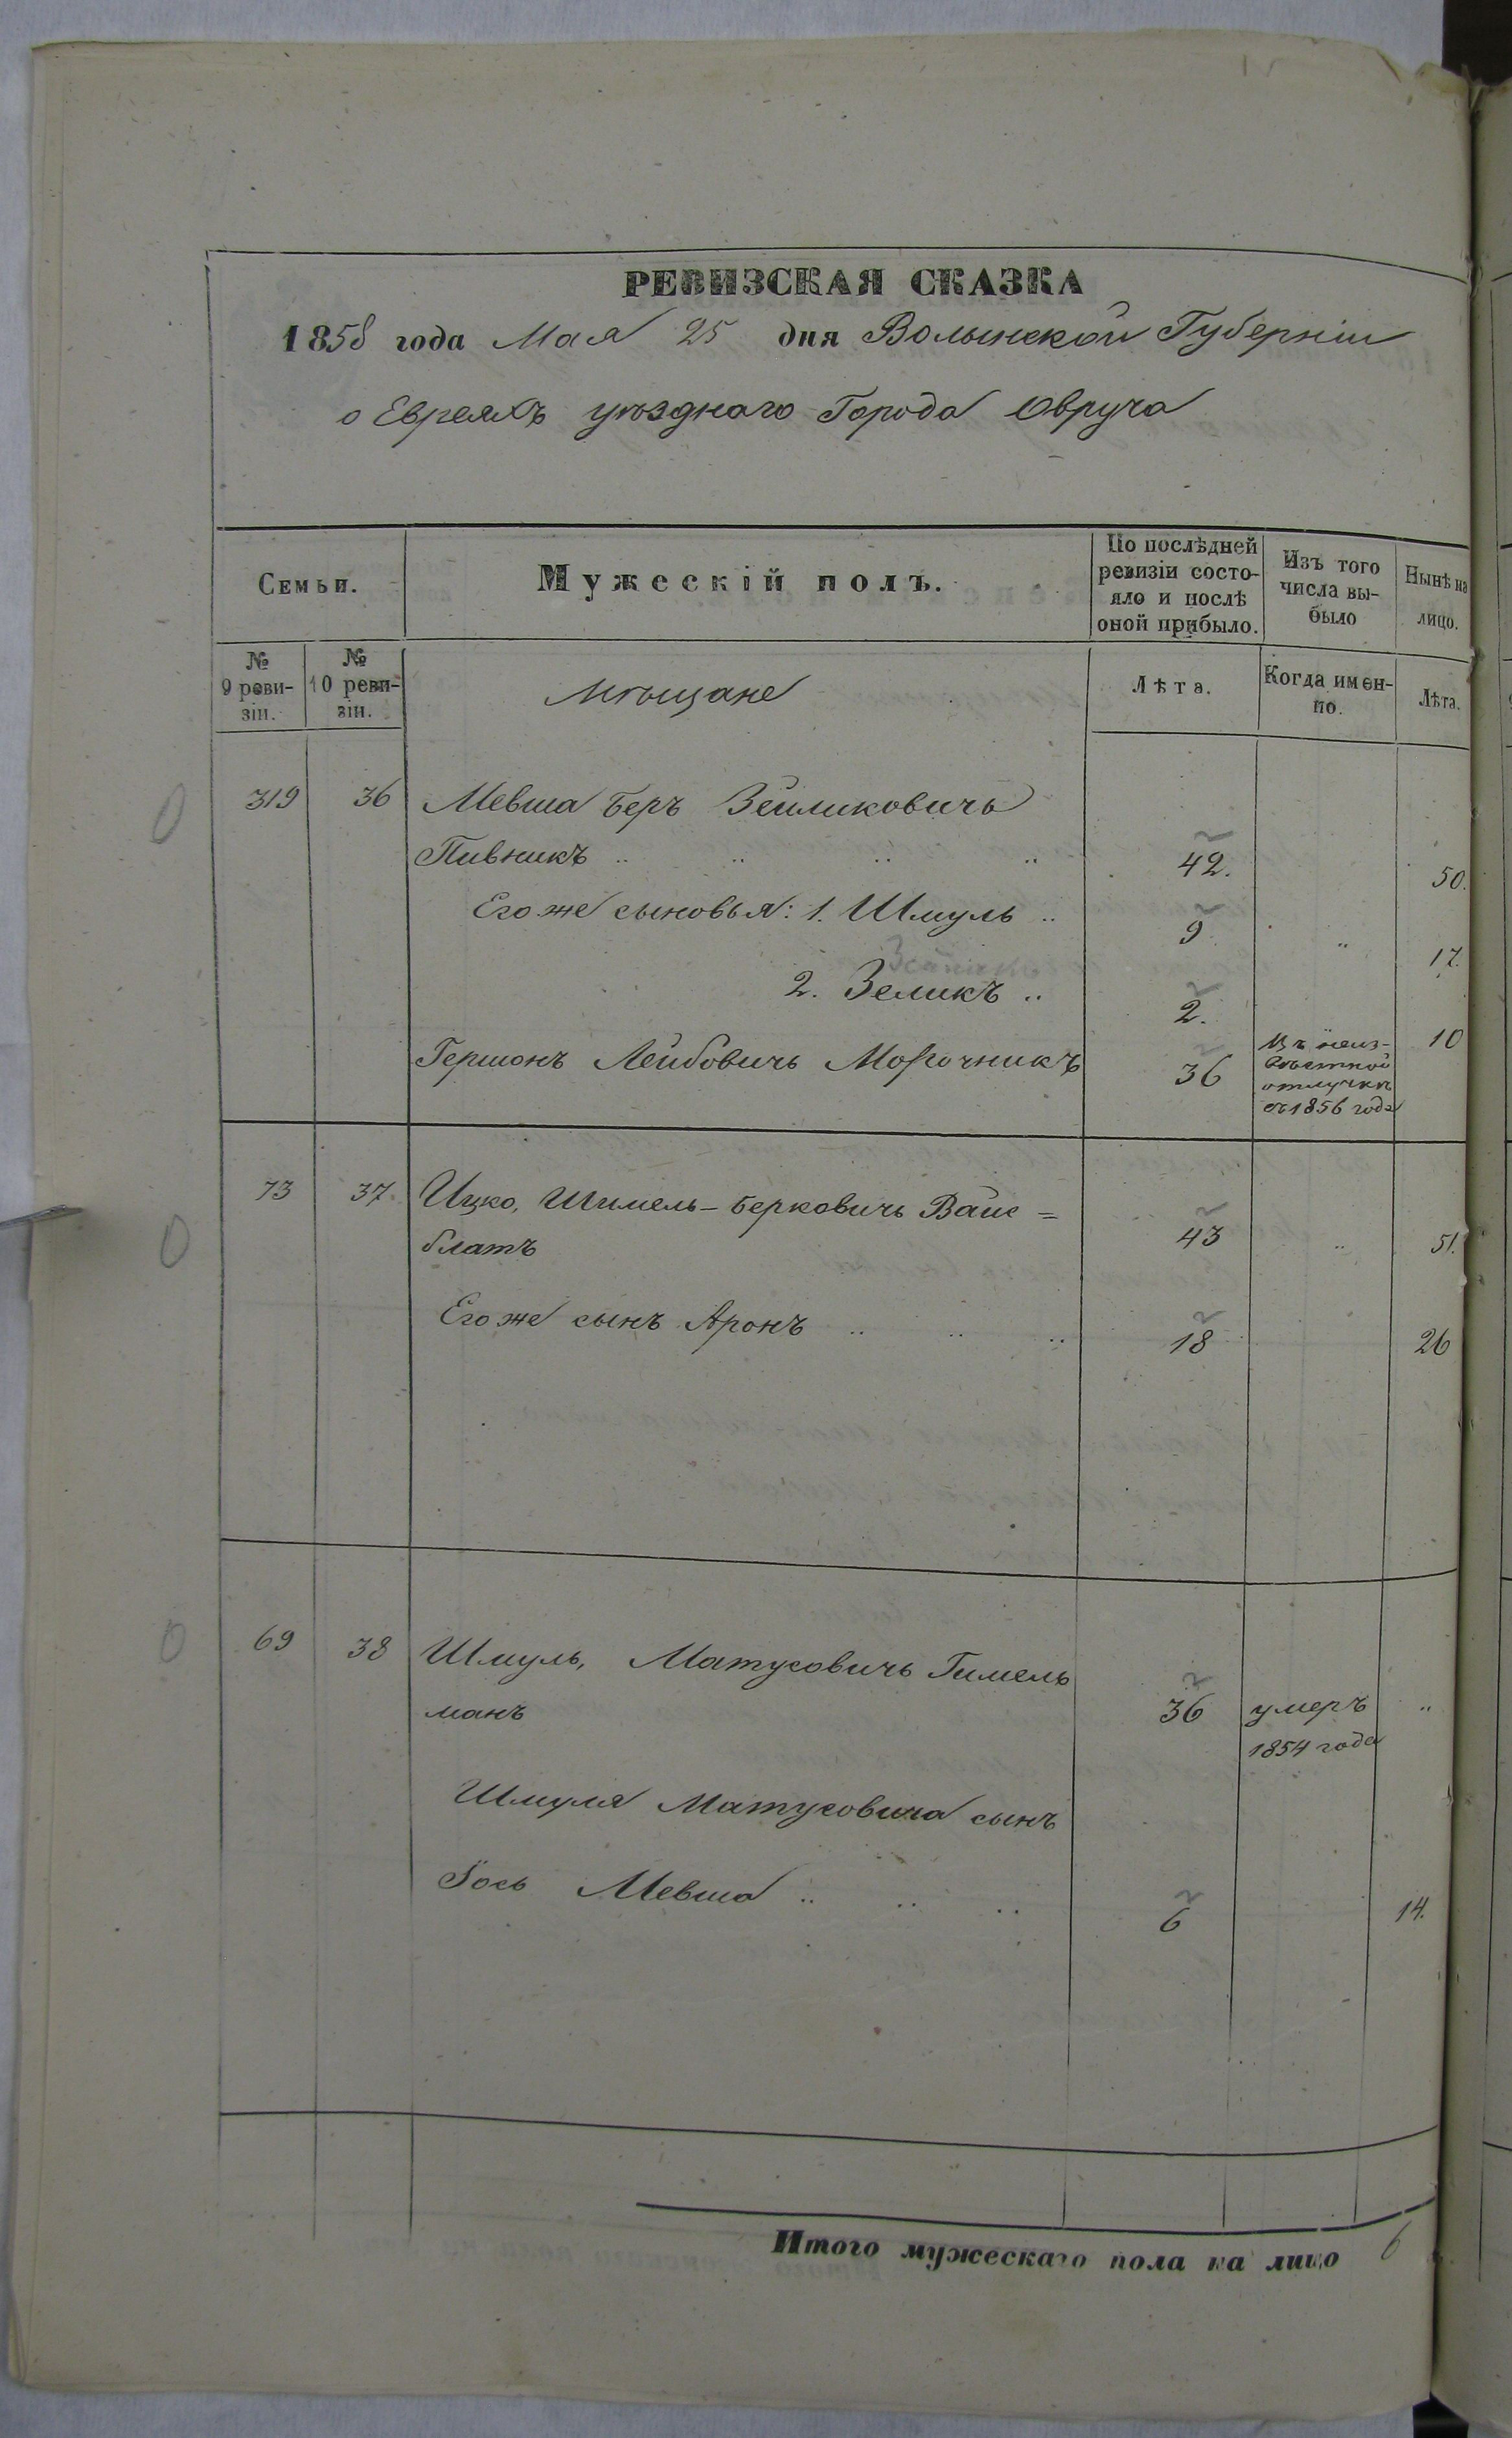 РЕВИЗСКАЯ СКАЗКА
1858 года Мая 25 дня Волынской Губерніи
о Евреяхъ уѣзднаго Города Овруча
Семьи.
Мужескій полъ.
По послѣдней ревизіи состо-
яло и послѣ
оной прибыло.
Изъ того
числа вы-
было
Нынѣ на
лицо.
№
9 реви-
зіи.
№
10 реви-
зіи.
Мѣщане
Лѣта.
Когда имен-
но.
Лѣта.
319 36 Мевша Беръ Зейликовичь
Пивникъ .. .. .. .. 42. 50.
Его же сыновья: 1. Шмуль .. 9 .. 17.
2. Зеликъ .. 2. 10
Гершонъ Лейбовичь Морочникъ 36 Въ неиз-
вѣстной
отлучкѣ
съ 1856 года
73 37. Ицко, Шимель-Берковичь Вайс=
блатъ 43 .. 51.
Его же сынъ Аронъ .. .. .. 18 26
69 38 Шмуль, Матусовичь Гимель
манъ 36 умеръ ..
1854 года
Шмуля Матусовича сынъ
Іось Мевша .. .. .. 6 14.
Итого мужескаго пола на лицо 6